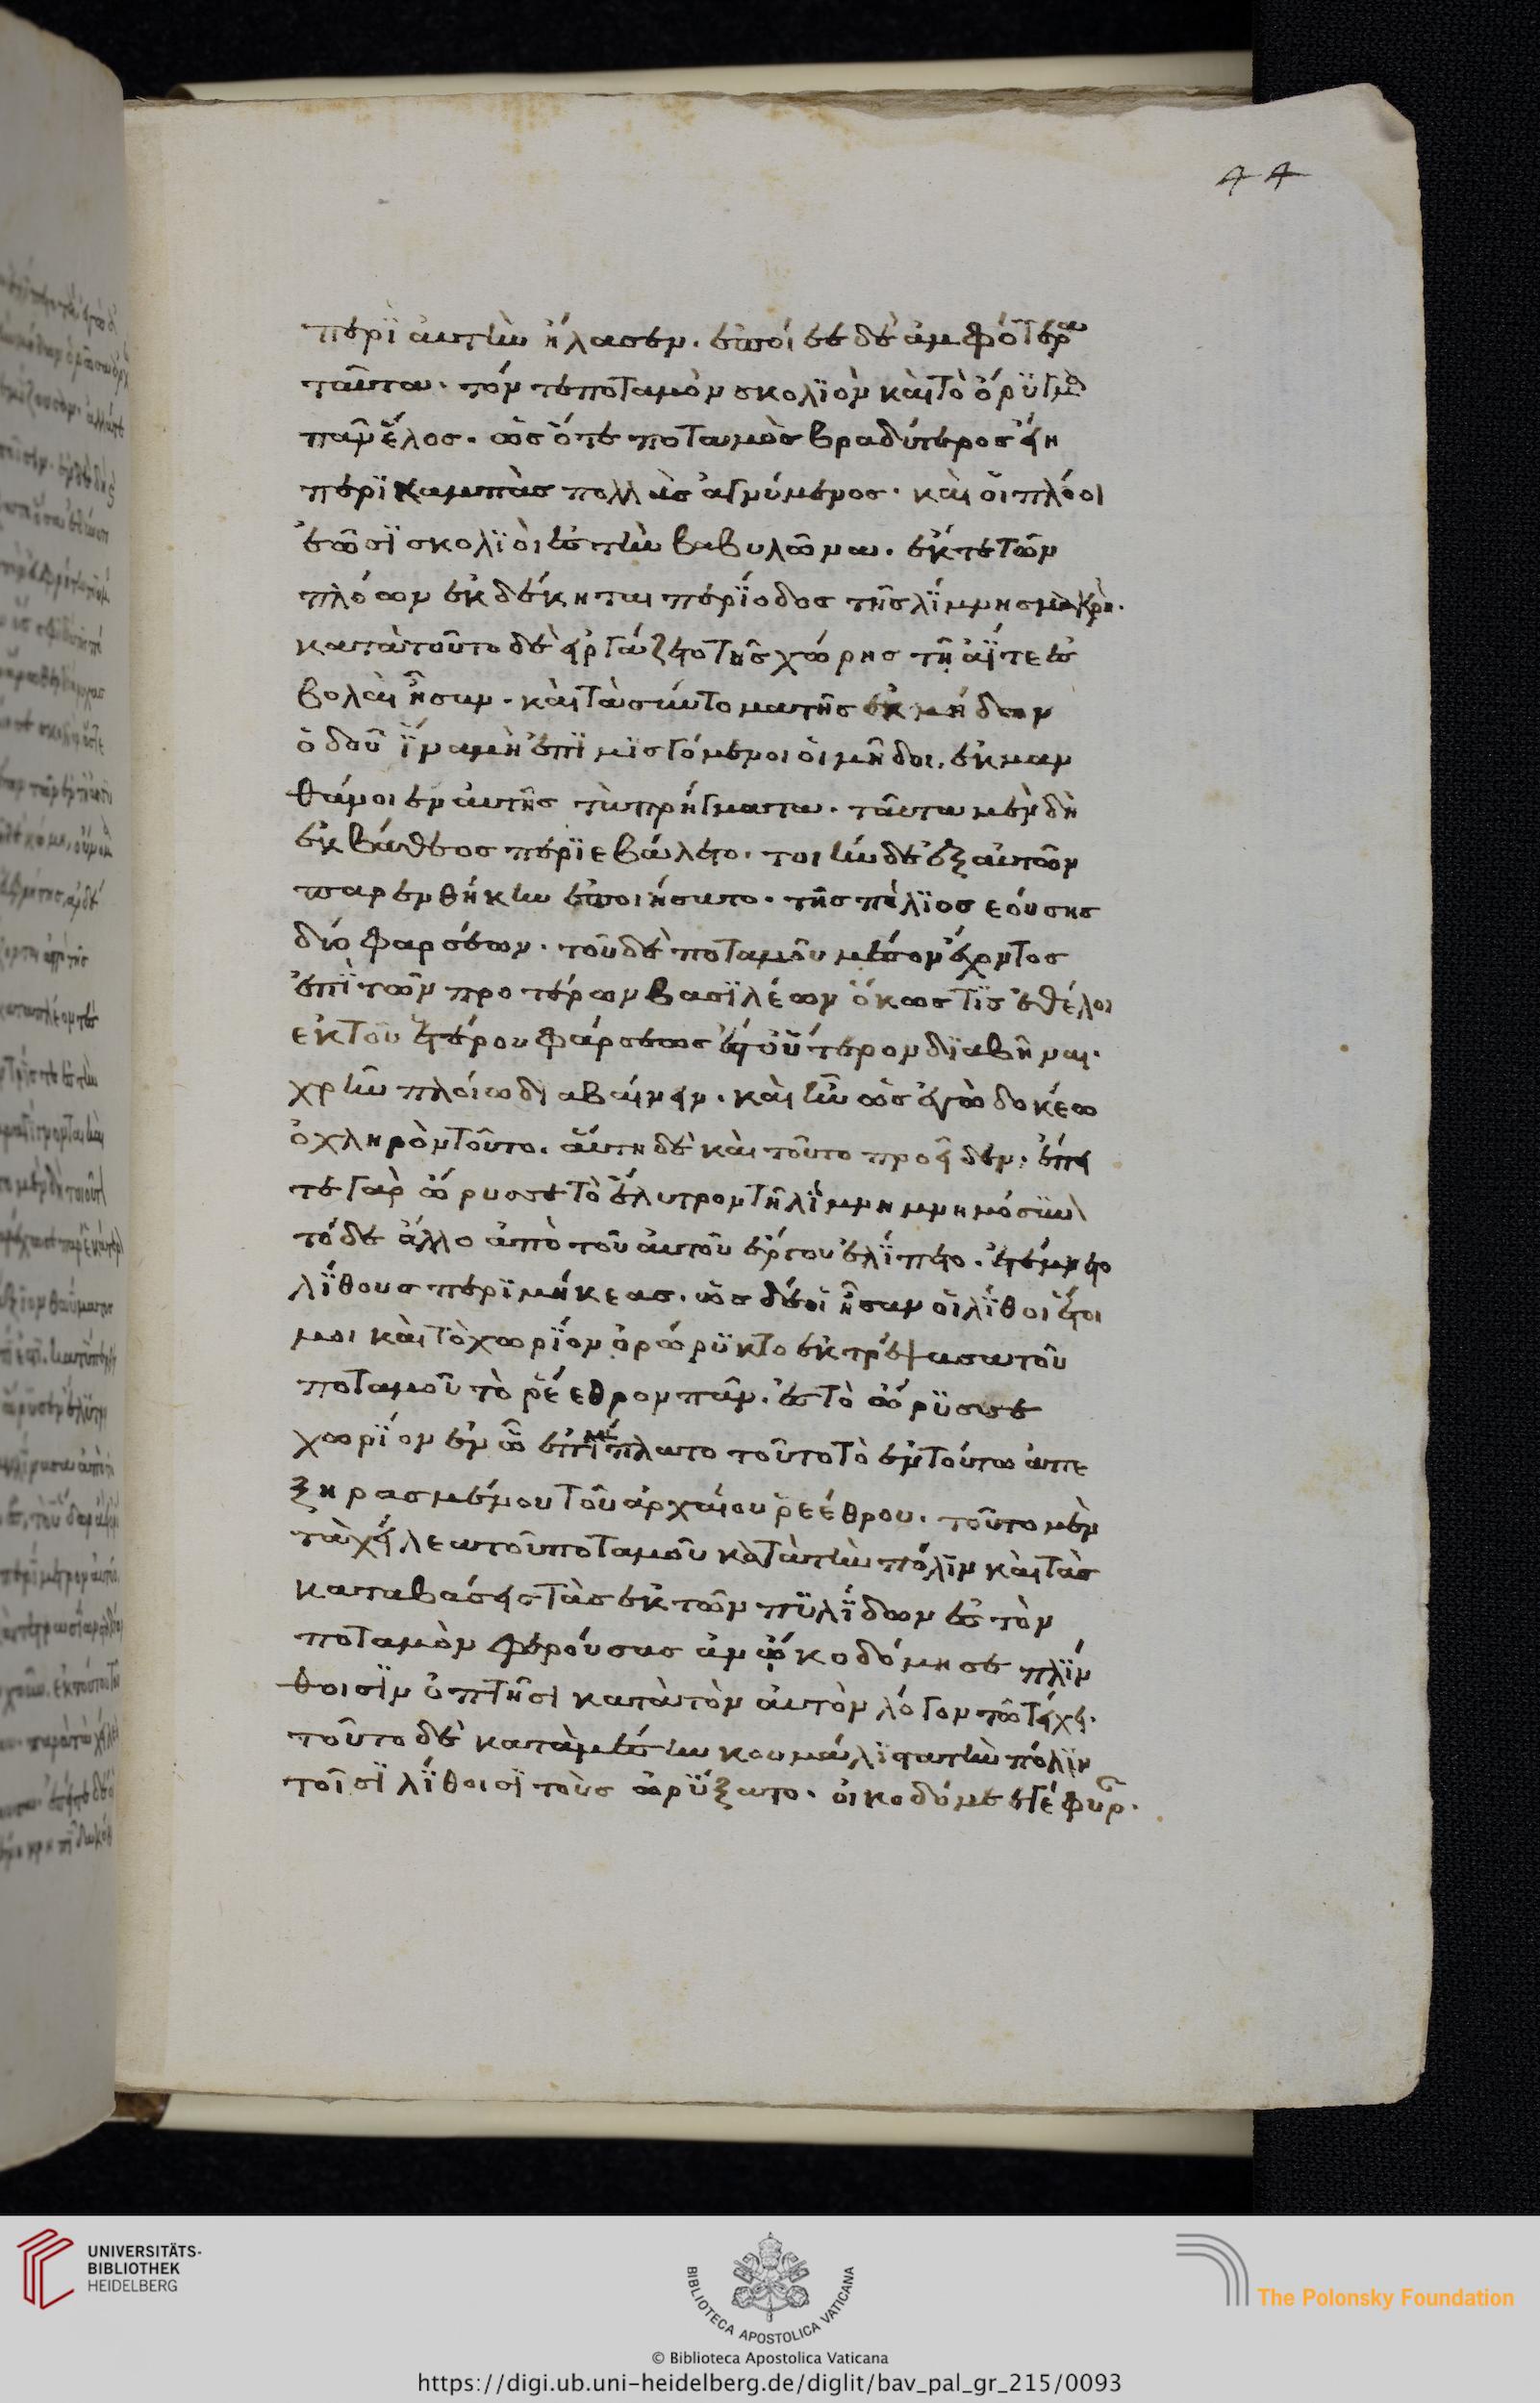 44
περὶ αὐτὴν ἤλασεν. ἐποίεε δὲ ἀμφότερα
ταῦτα. τόν τε ποταμὸν σκολϊὸν καὶ τὸ ὄρϋγμα
πᾶν ἕλος. ὡς ὅτε ποταμὸς βραδύτερος εἴη
περὶ καμπὰς πολλὰς ἀγνύμενος. καὶ οἱ πλόοι
ἔωσϊ σκολϊοὶ ἐς τὴν βαβυλῶνα. ἔκ τε τῶν
πλόων ἐκδέκηται περίοδος τῆς λίμνης μακρὴ.
κατὰ τοῦτο δὲ εἰργάζετο τῆς χώρης τῇ αἵ τε ἐσ
βολαὶ ἦσαν. καὶ τὰ σύντομα τῆς ἐκ μήδων
ὁδοῦ ἵνα μὴ ἐπϊμϊσγόμενοι οἱ μῆδοι. ἐκμαν
θάνοιεν αὐτῆς τὰ πρήγματα. ταῦτα μὲν δὴ
ἐκ βάθεος περιεβάλετο. τοιήνδε ἐξ αὐτῶν
παρενθήκην ἐποιήσατο. τῆς πόλϊος ἐούσης
δύο φαρσέων. τοῦ δὲ ποταμοῦ μέσον ἔχοντος
ἐπὶ τῶν προτέρων βασϊλέων ὅκως τὶς ἐθέλοι
ἐκ τοῦ ἑτέρου φάρσεος ἐς τοὔτερον διαβῆναι.
χρῆν πλοίω διαβαίνειν. καὶ ἦν ὡς ἐγὼ δοκέω
ὀχληρὸν τοῦτο. αὕτη δὲ καὶ τοῦτο προεῖδεν. ἐπεί
τε γὰρ ὤρυσσε τὸ ἔλυτρον τῆ λίμνη μνημόσυνον
τόδε ἄλλο ἀπὸ τοῦ αὐτοῦ ἔργου ἐλίπετο. ἐτέμνετο
λίθους περιμήκεας. ὡς δέ οἱ ἦσαν οἱ λίθοι ἕτοι
μοι καὶ τὸ χωρίον ὀρώρϋκτο ἐκτρέψασα τοῦ
ποταμοῦ τὸ ῥέεθρον πᾶν. ἐς τὸ ὤρϋσσε
χωρίον ἐν ὧ ἐπίμπλατο τοῦτο τὸ ἐν τούτω ἀπε
ξηρασμένου τοῦ ἀρχαίου ῥεέθρου. τοῦτο μὲν
τὰ χείλεα τοῦ ποταμοῦ κατὰ τὴν πόλϊν καὶ τὰς
καταβάσεις τὰς ἐκ τῶν πϋλίδων ἐς τὸν
ποταμὸν φερούσας ἀνωκοδόμησε πλίν
θοισϊν ὀπτῆσι κατὰ τὸν αὐτὸν λόγον τῶ τείχει.
τοῦτο δὲ κατὰ μέσην κου μάλιστα τὴν πόλϊν
τοῖσϊ λίθοισϊ τοὺς ὠρύξατο. οἰκοδόμεε γέφυραν.
UNIVERSITÄTS-
BIBLIOTHEK
HEIDELBERG
BIBLIOTECA APOSTOLICA VATICANA
The Polonsky Foundation
© Biblioteca Apostolica Vaticana
https://digi.ub.uni-heidelberg.de/diglit/bav_pal_gr_215/0093